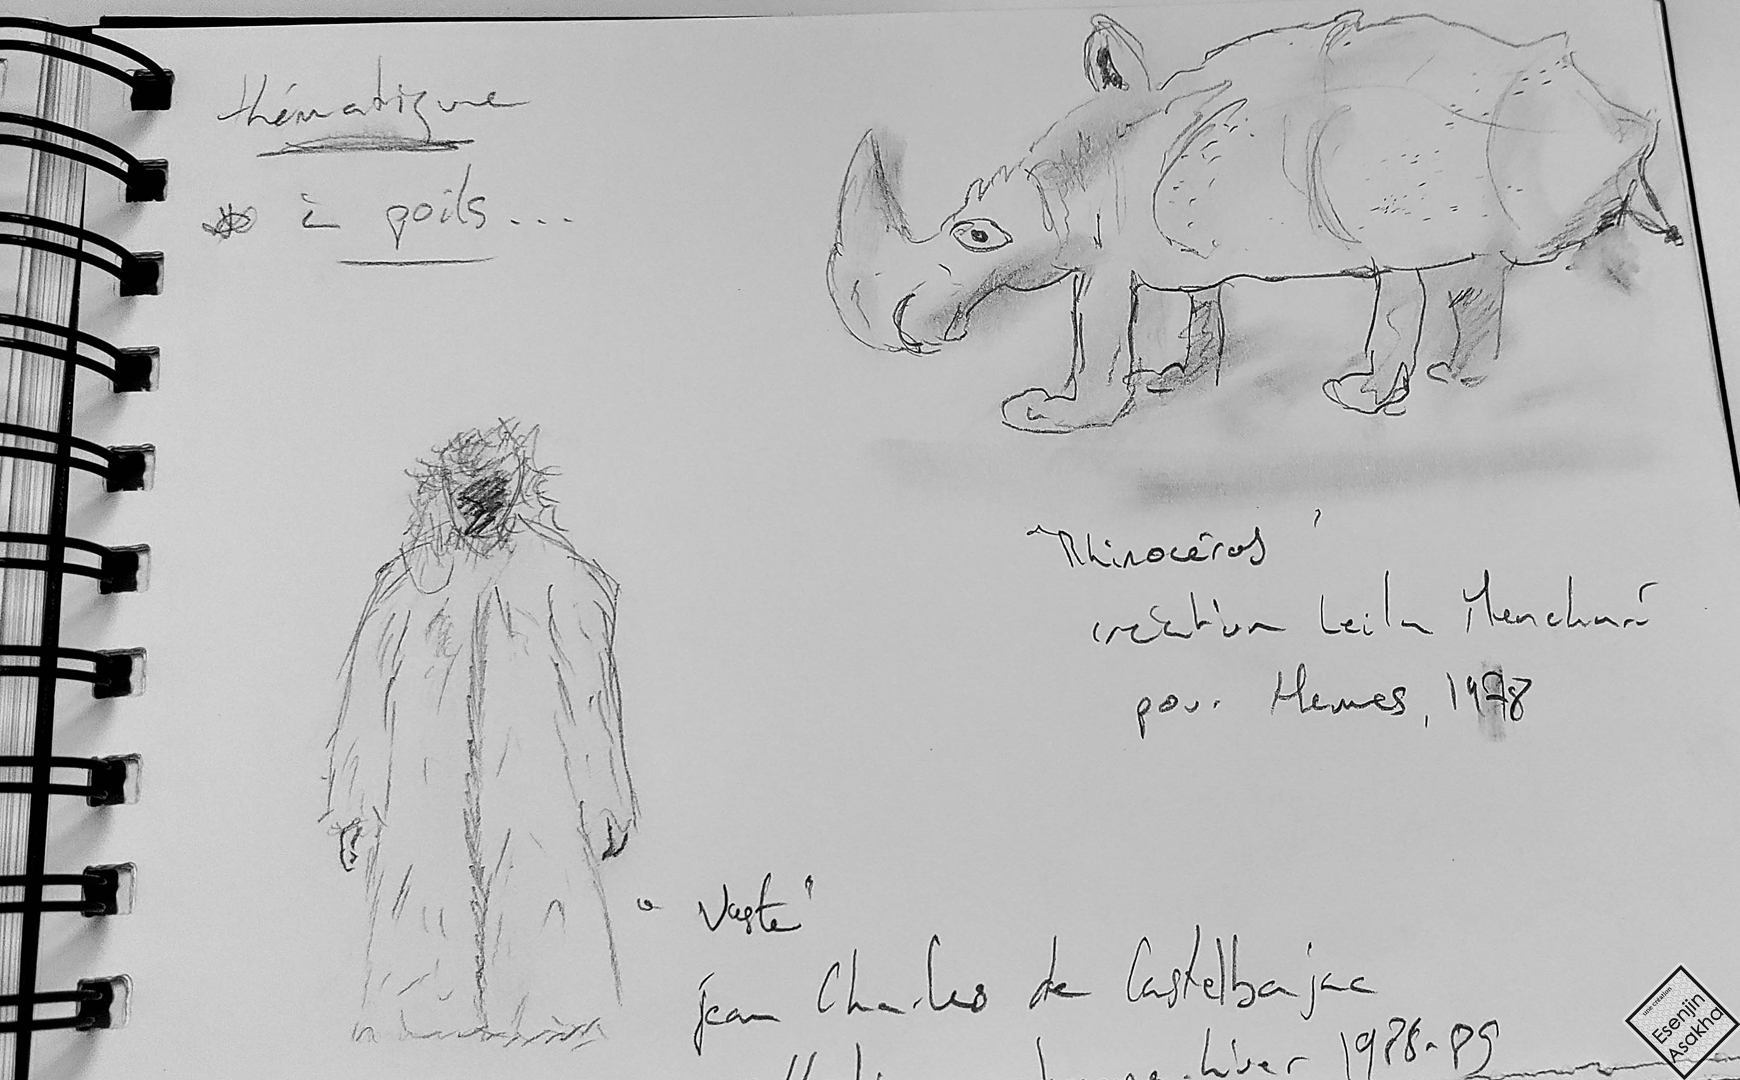 thématique
à poils...
"Rhinocéros"
création Leila Menchari
pour Hermes, 1978
"Veste"
jean Charles de Castelbajac
hiver 1988-89
une création
Esenijin
Asakhaï